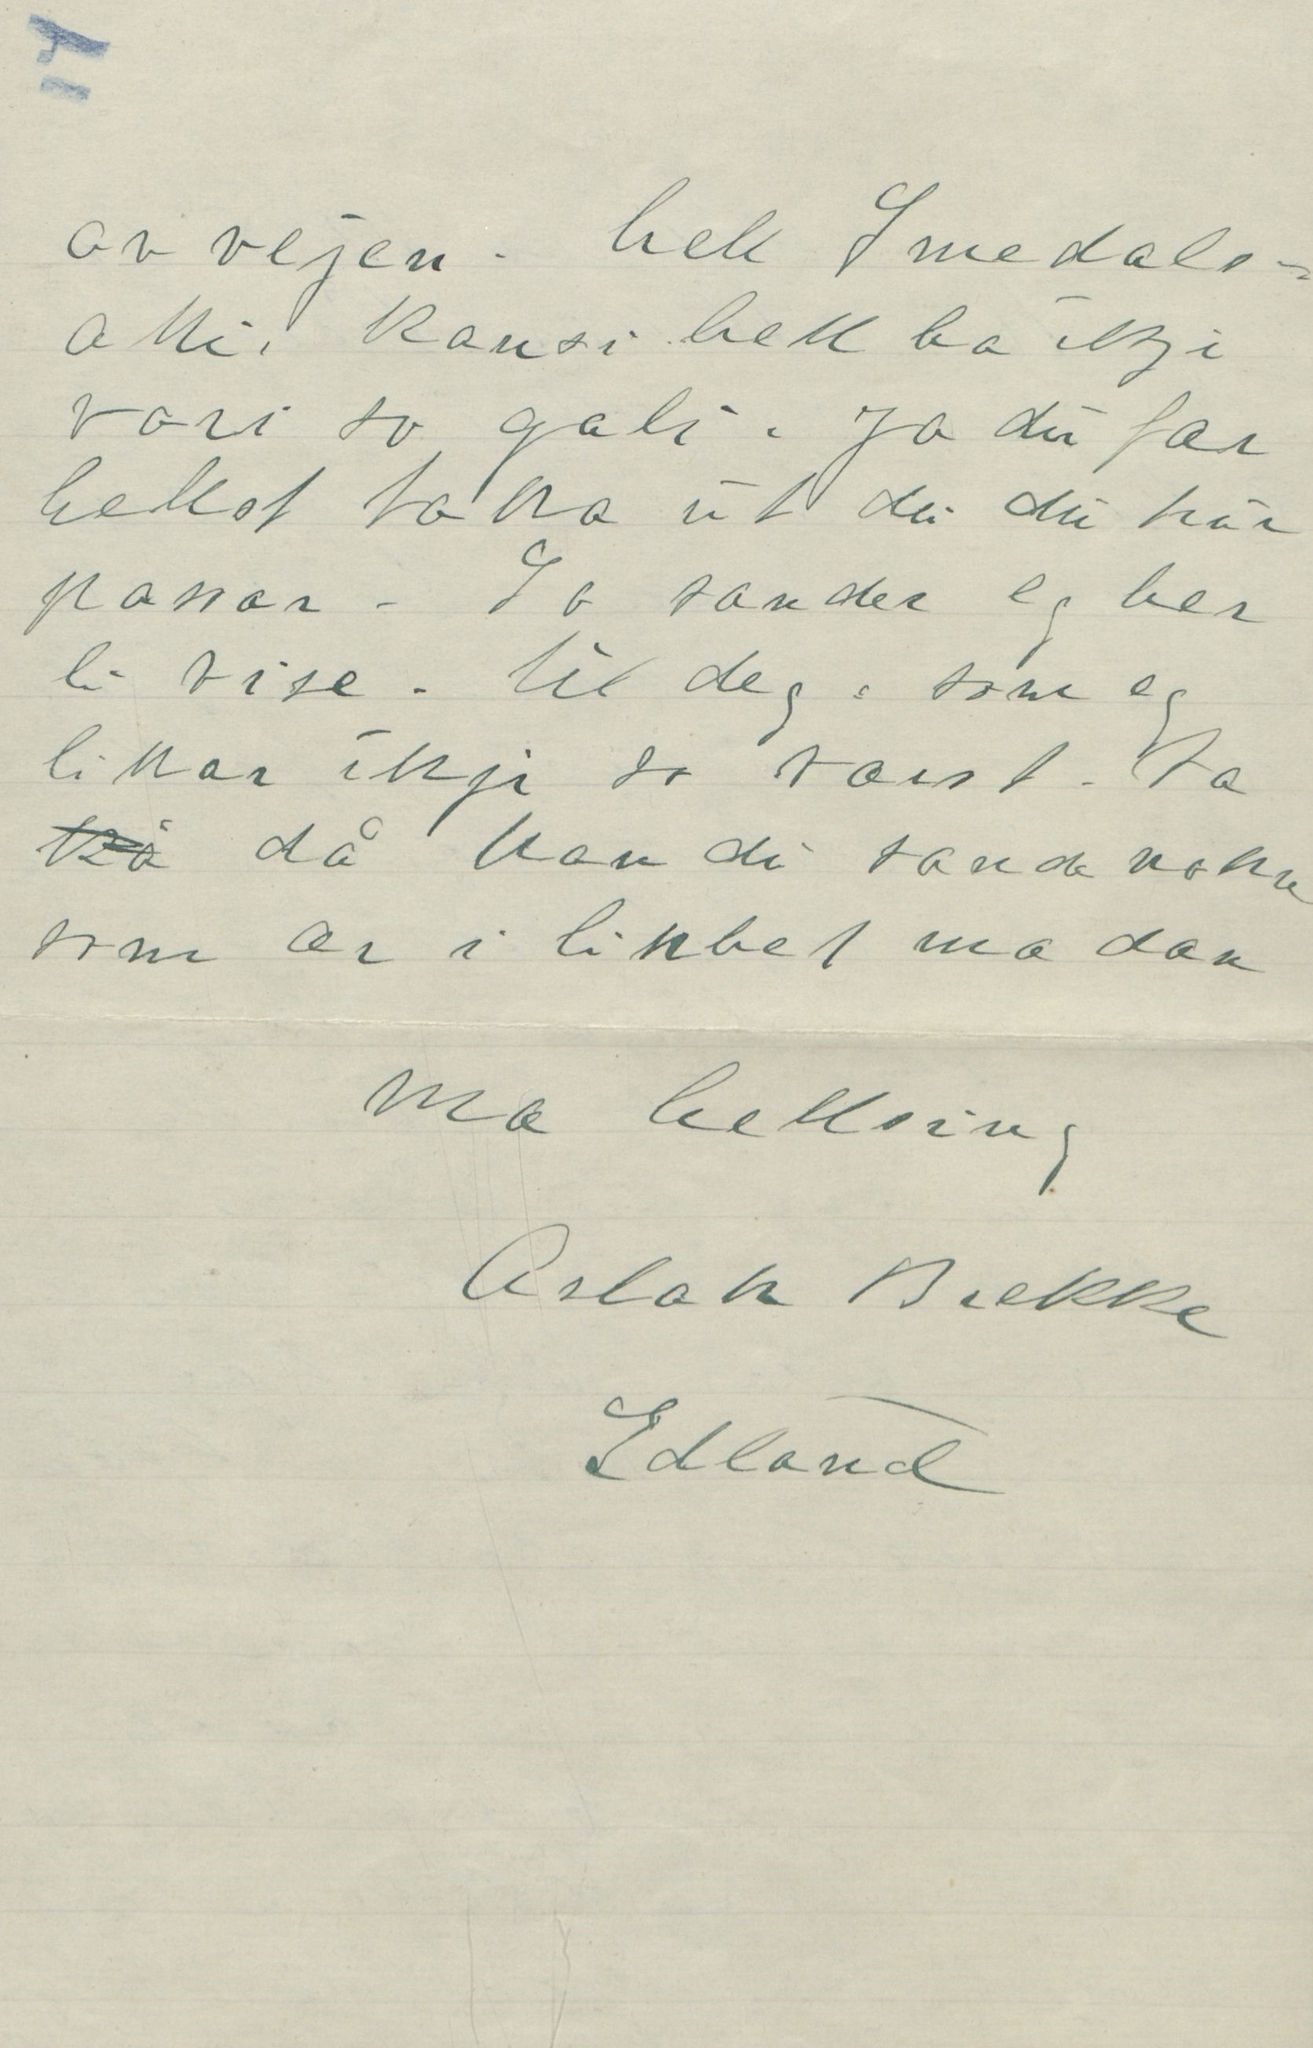 av vejen. hell Smedals-
atti. Kansi hell ha ikji
vori so gali. Ja du fær
hellst taka ut du du trur
passar. So sander eg her
ei vise. til deg. som eg
likar ikji so vært. So
då kan du sanda noku
som ær i likhet mæ dan
Mæ hellsing
Aslak Brekke
Edland